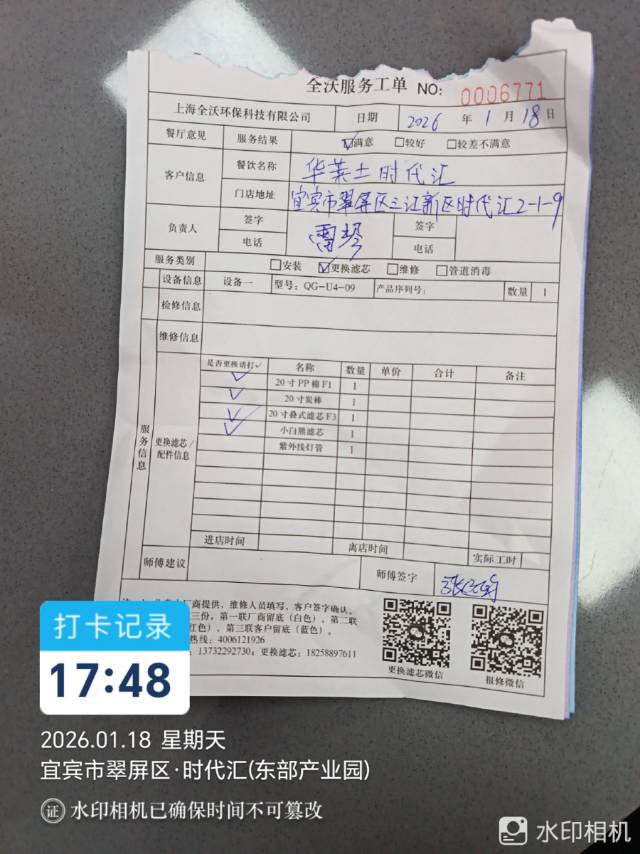 全沃服务工单 NO: 0006771
上海全沃环保科技有限公司 日期 2026 年 1 月 18 日
餐厅意见 服务结果 ☑满意 □较好 □较差不满意
客户信息 餐饮名称 华莱士时代汇
门店地址 宜宾市翠屏区三江新区时代汇2-1-9
负责人 签字 签字
电话 电话
服务类别 □安装 ☑更换滤芯 □维修 □管道消毒
设备信息 设备一 型号: QG-U4-09 产品序列号: 数量 1
检修信息
维修信息
服务信息 更换滤芯/配件信息
是否更换请打✓ 名称 数量 单价 合计 备注
✓ 20寸PP棉F1 1
✓ 20寸炭棒 1
✓ 20寸叠式滤芯F3 1
✓ 小白熊滤芯 1
紫外线灯管 1
进店时间 离店时间 实际工时
师傅建议 师傅签字
厂商提供，维修人员填写，客户签字确认。
三份，第一联厂商留底（白色），第二联
红色），第三联客户留底（蓝色）。
热线: 4006121926
13732292730, 更换滤芯: 18258897611
更换滤芯微信 报修微信
打卡记录
17:48
2026.01.18 星期天
宜宾市翠屏区·时代汇(东部产业园)
证 水印相机已确保时间不可篡改
水印相机